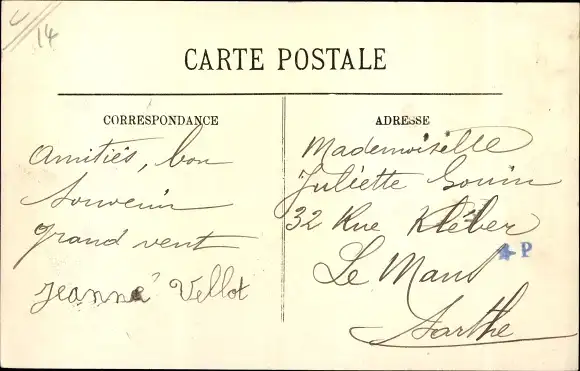 14
CARTE POSTALE
CORRESPONDANCE
Amitiés, bon
Souvenir
grand vent
Jeanne Vellot
ADRESSE
Mademoiselle
Juliette Gouin
32 Rue Kléber
Le Mans
Sarthe
4 P